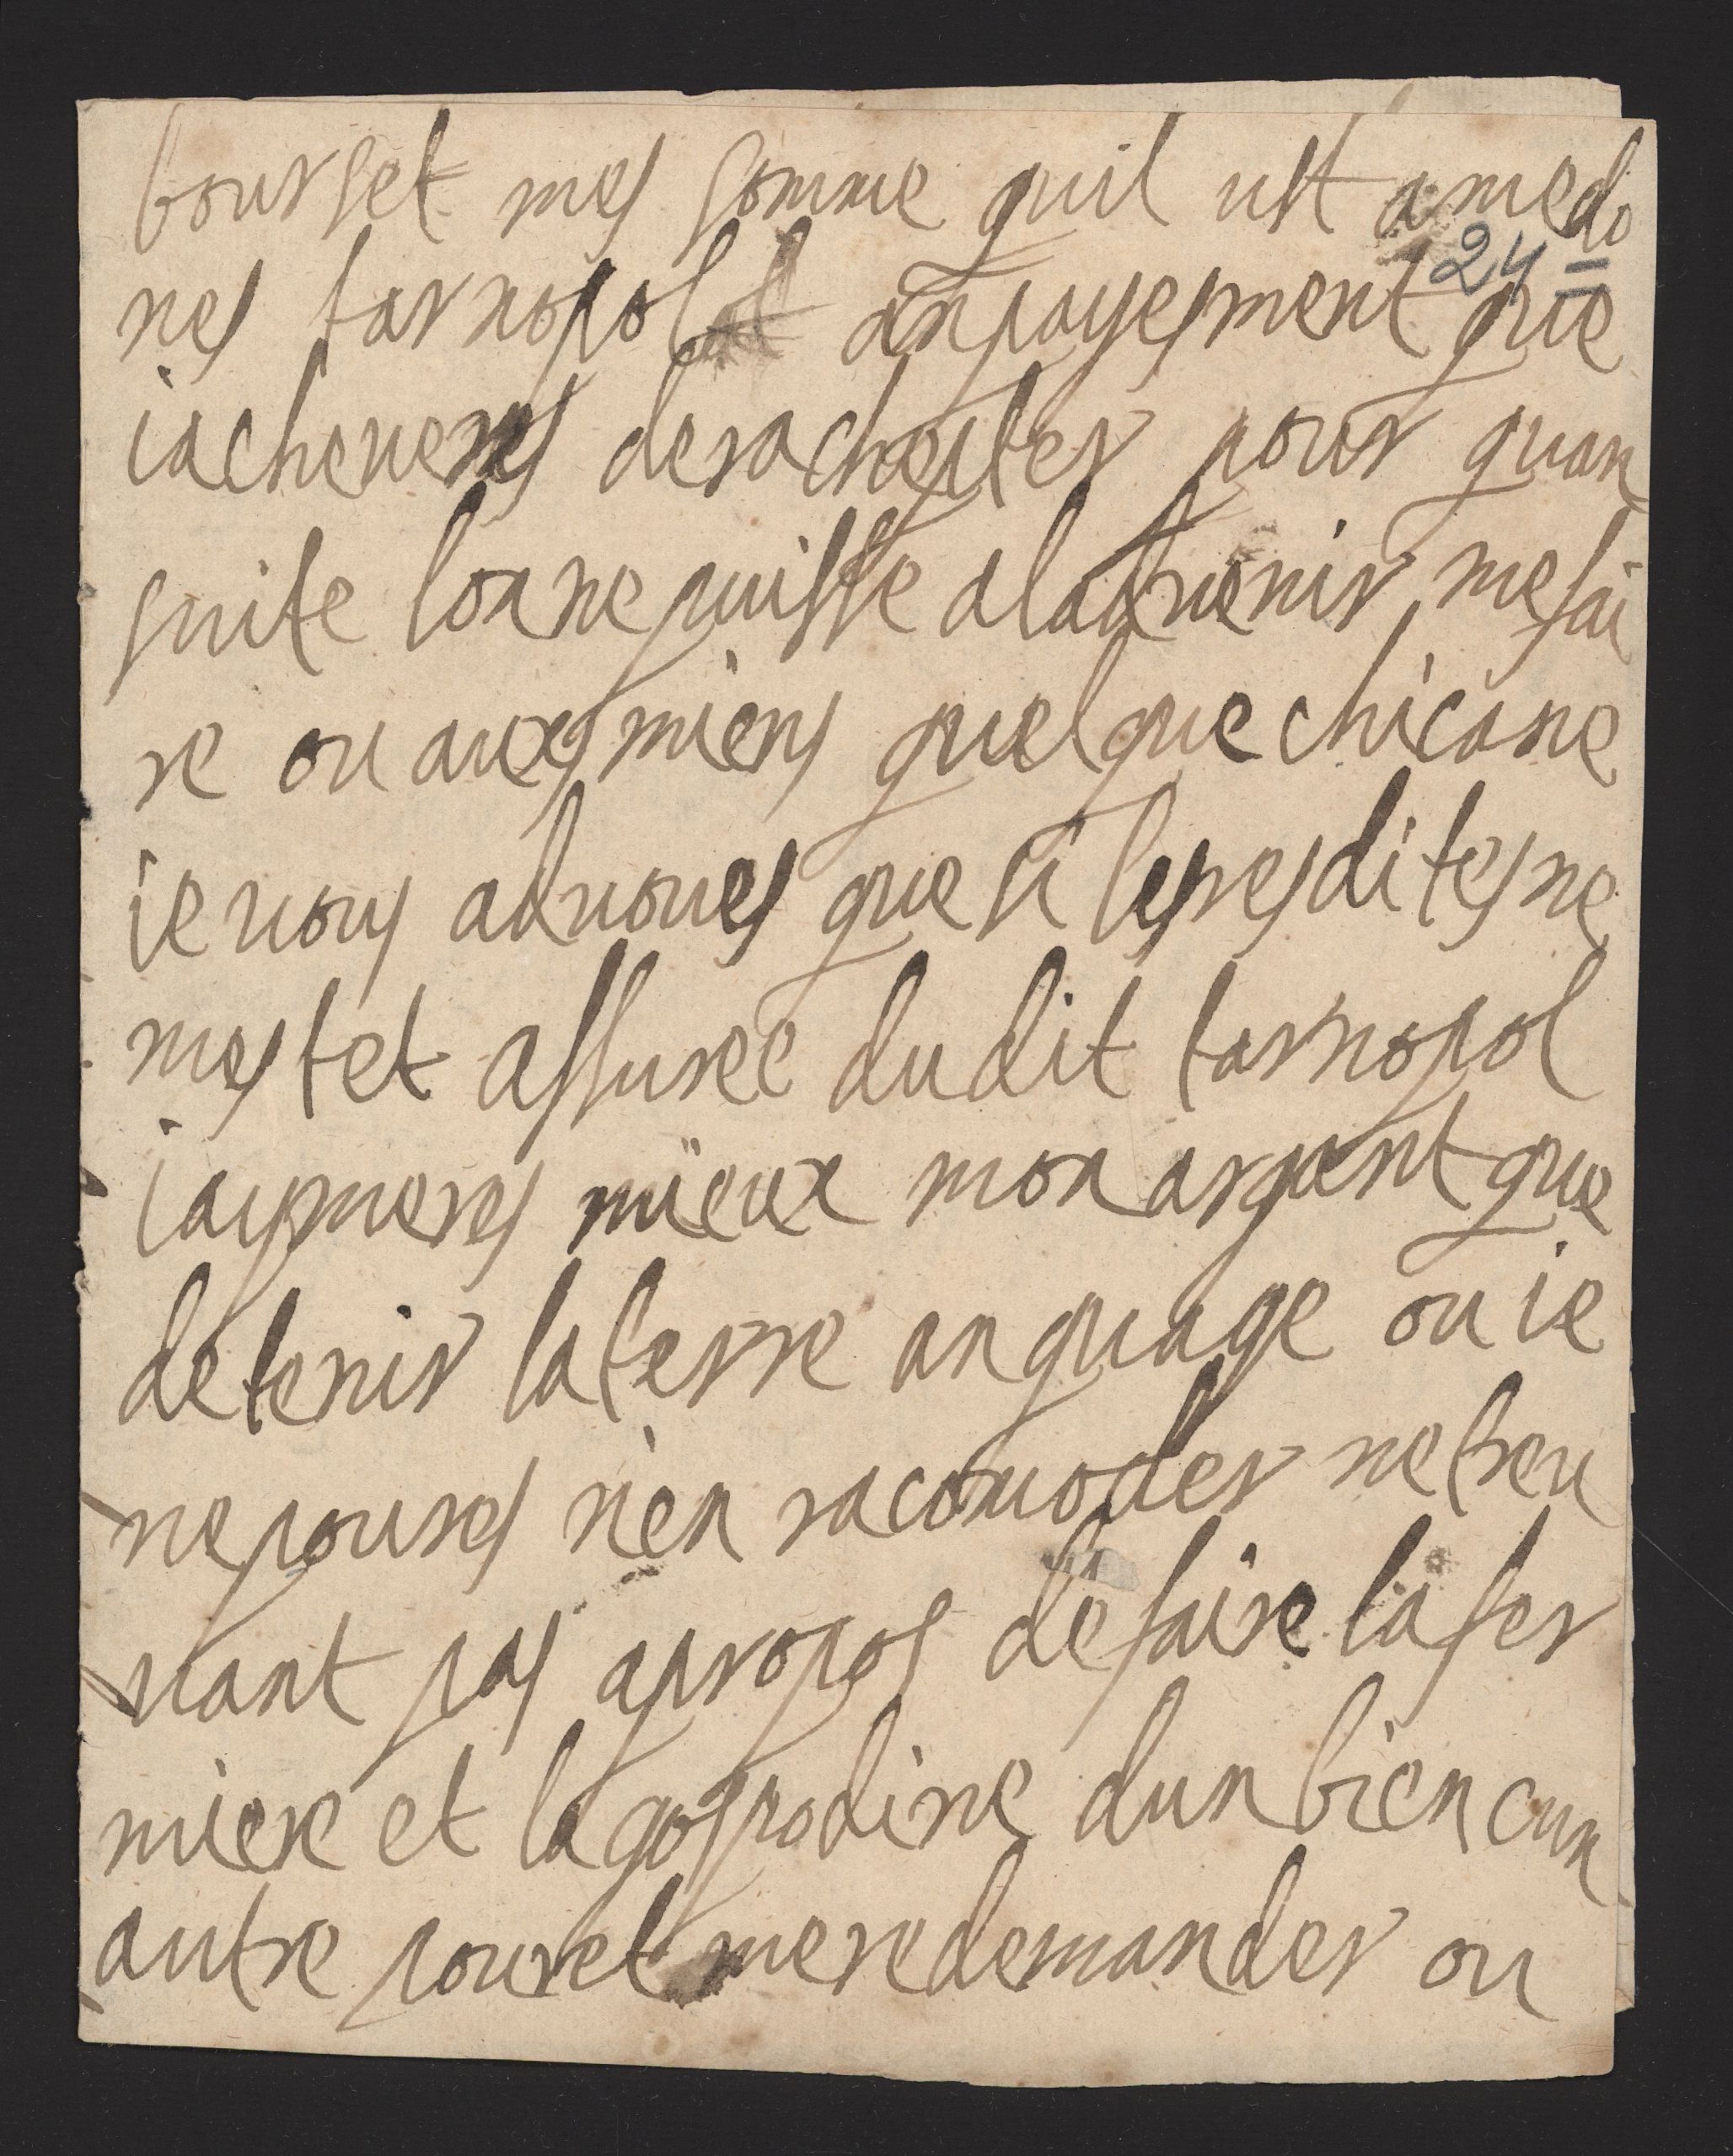 bourset mes somme quil ust a me do
24 =
nes tarnopol anpayesment que
iacheveres desachester pour quan
suite lon ne puisse aladvenir me fai
re ou aux miens quelque chicane
ie vous advoues que si lesresdites ne
mestet assuree du dit tarnopol
iaymeres mieux mon argent que
de tenir la terre an guage ou ie
ne poures rien racomoder ne treu
vant pas apropos de faire la fer
miere et la gospodine dun bien cun
autre pouret me redemander ou